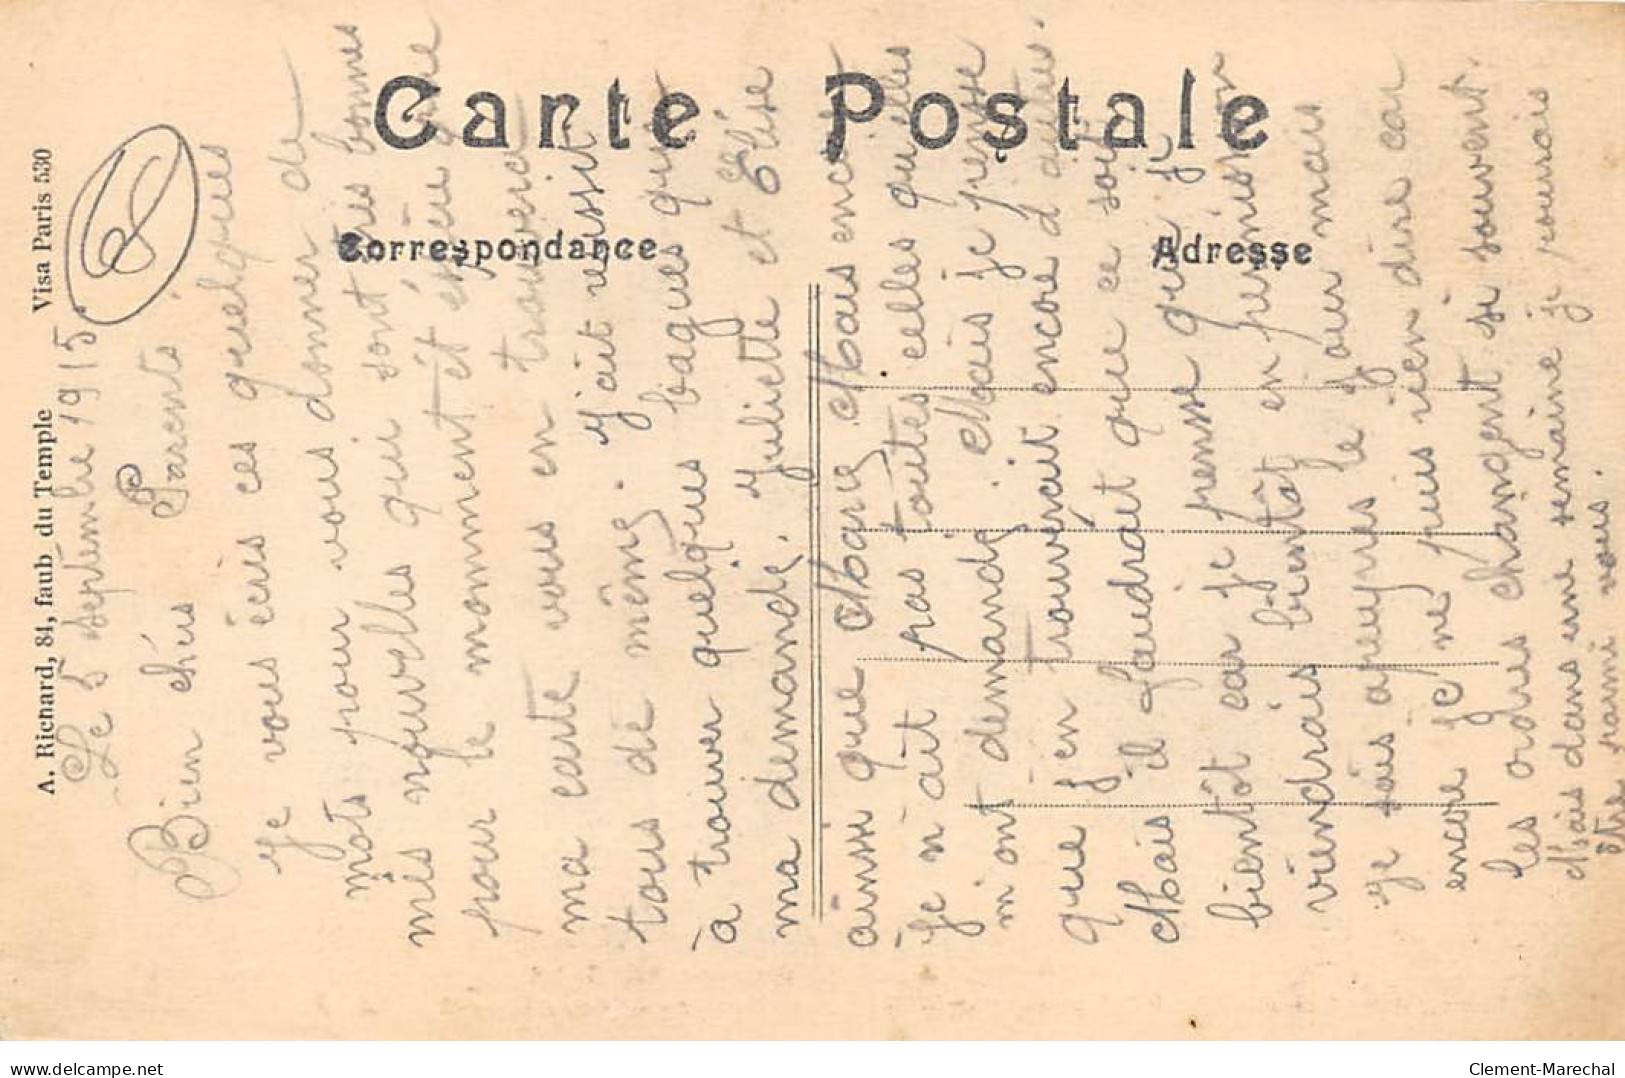 Carte Postale
Correspondance
Adresse
A. Richard, 84, faub du Temple Visa Paris 530
Le 5 Septembre 1915.
Bien chérs Parents.
Je vous écris ces quelques
mots pour vous donner de
mes nouvelles qui sont très bonnes
pour le momment èt espère
ma carte vous en trouvera
tous de mêmé. J'ait reussit
à trouver quelques bagues qui
ma demandé. Juliette et Elise
ainsi que Marie Mais encor
Je n'ait pas toutes celles qu'elles
m'ont demandé. Mais je pensse
que j'en trouverait encore d'autres.
Mais il faudrait que ce soit
bientôt car je pensse que je
viendrais bientôt en permission
Je sais apeuprès le jour mais
encore je né puis rien dire car
les ordres changent si souvent.
Mais dans une semaine je pourrais
être parmi vous.
delcampe.net
Clement-Marechal